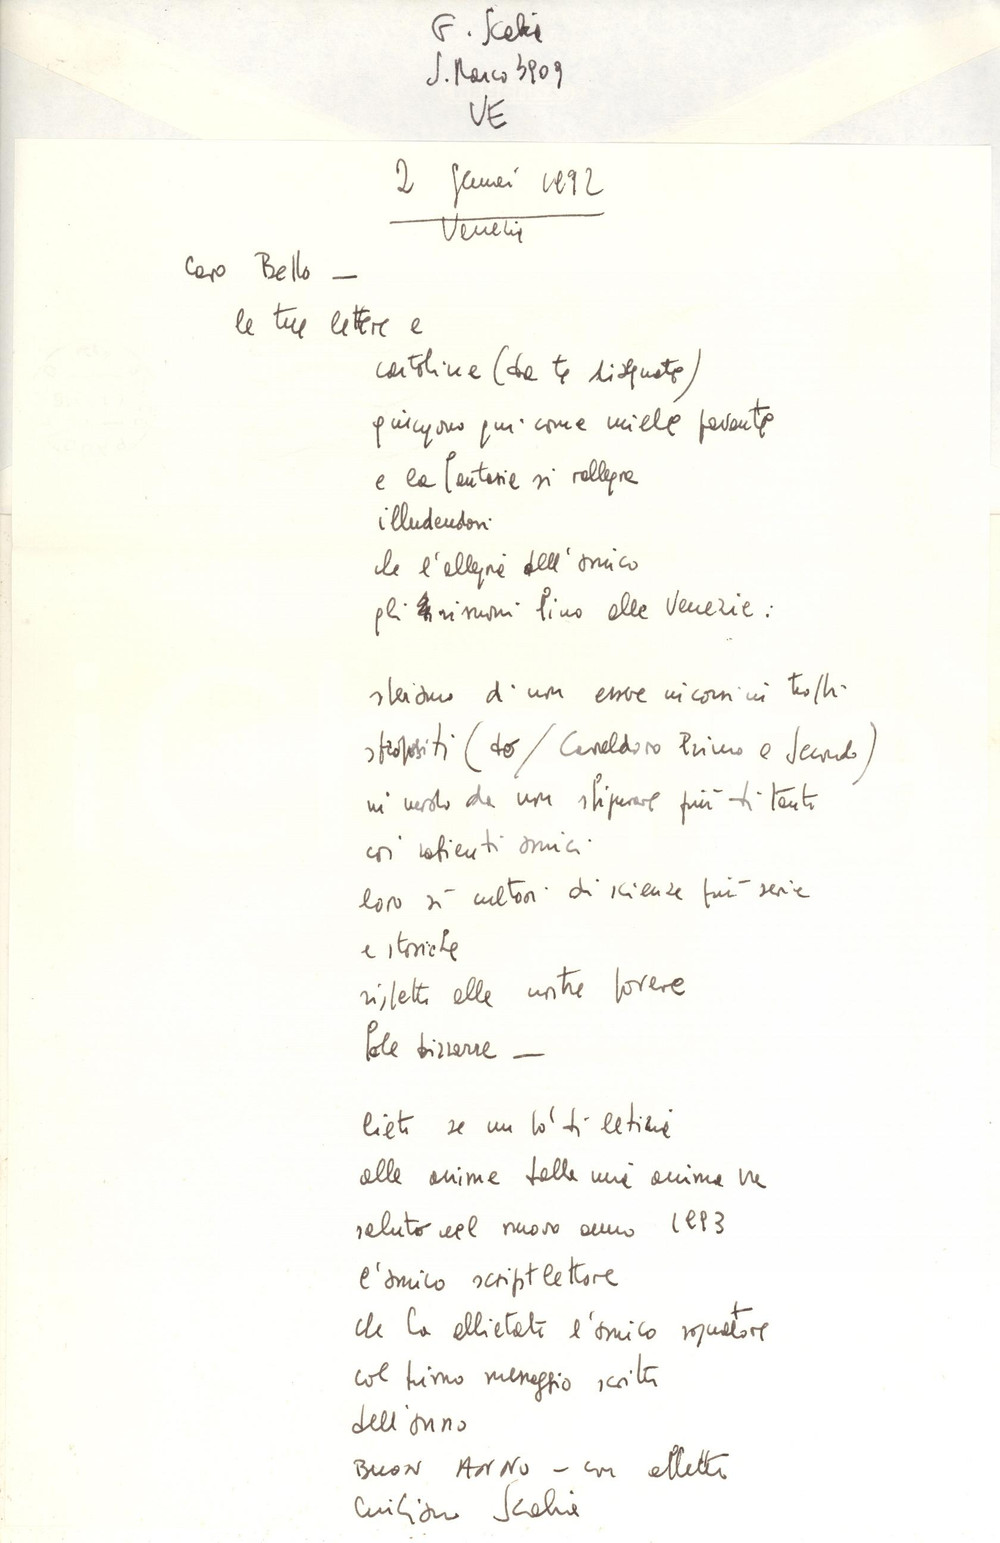 G. Scabia
S. Marco 3909
VE
2 gennaio 1992
Venezia
Caro Bello —
le tue lettere e
cartoline (da te disegnate)
giungono qui come miele
e la fantasia si rallegra
illudendosi
che l'allegria dell'amico
gli risuoni fino alle Venezie:
di non essere incorsi in troppi
spropositi (Primo e Secondo)
in modo da non più di tanto
così sapienti amici
loro sì cultori di scienze più serie
e storiche
rispetto alle nostre povere
fole bizzarre —
lieto se un po' di letizia
alle anime dalla mia anima va
saluto nel nuovo anno 1993
l'amico scriptlettore
che ha allietato l'amico sognatore
col primo messaggio scritto
dell'anno
BUON ANNO — con affetto
Giuliano Scabia